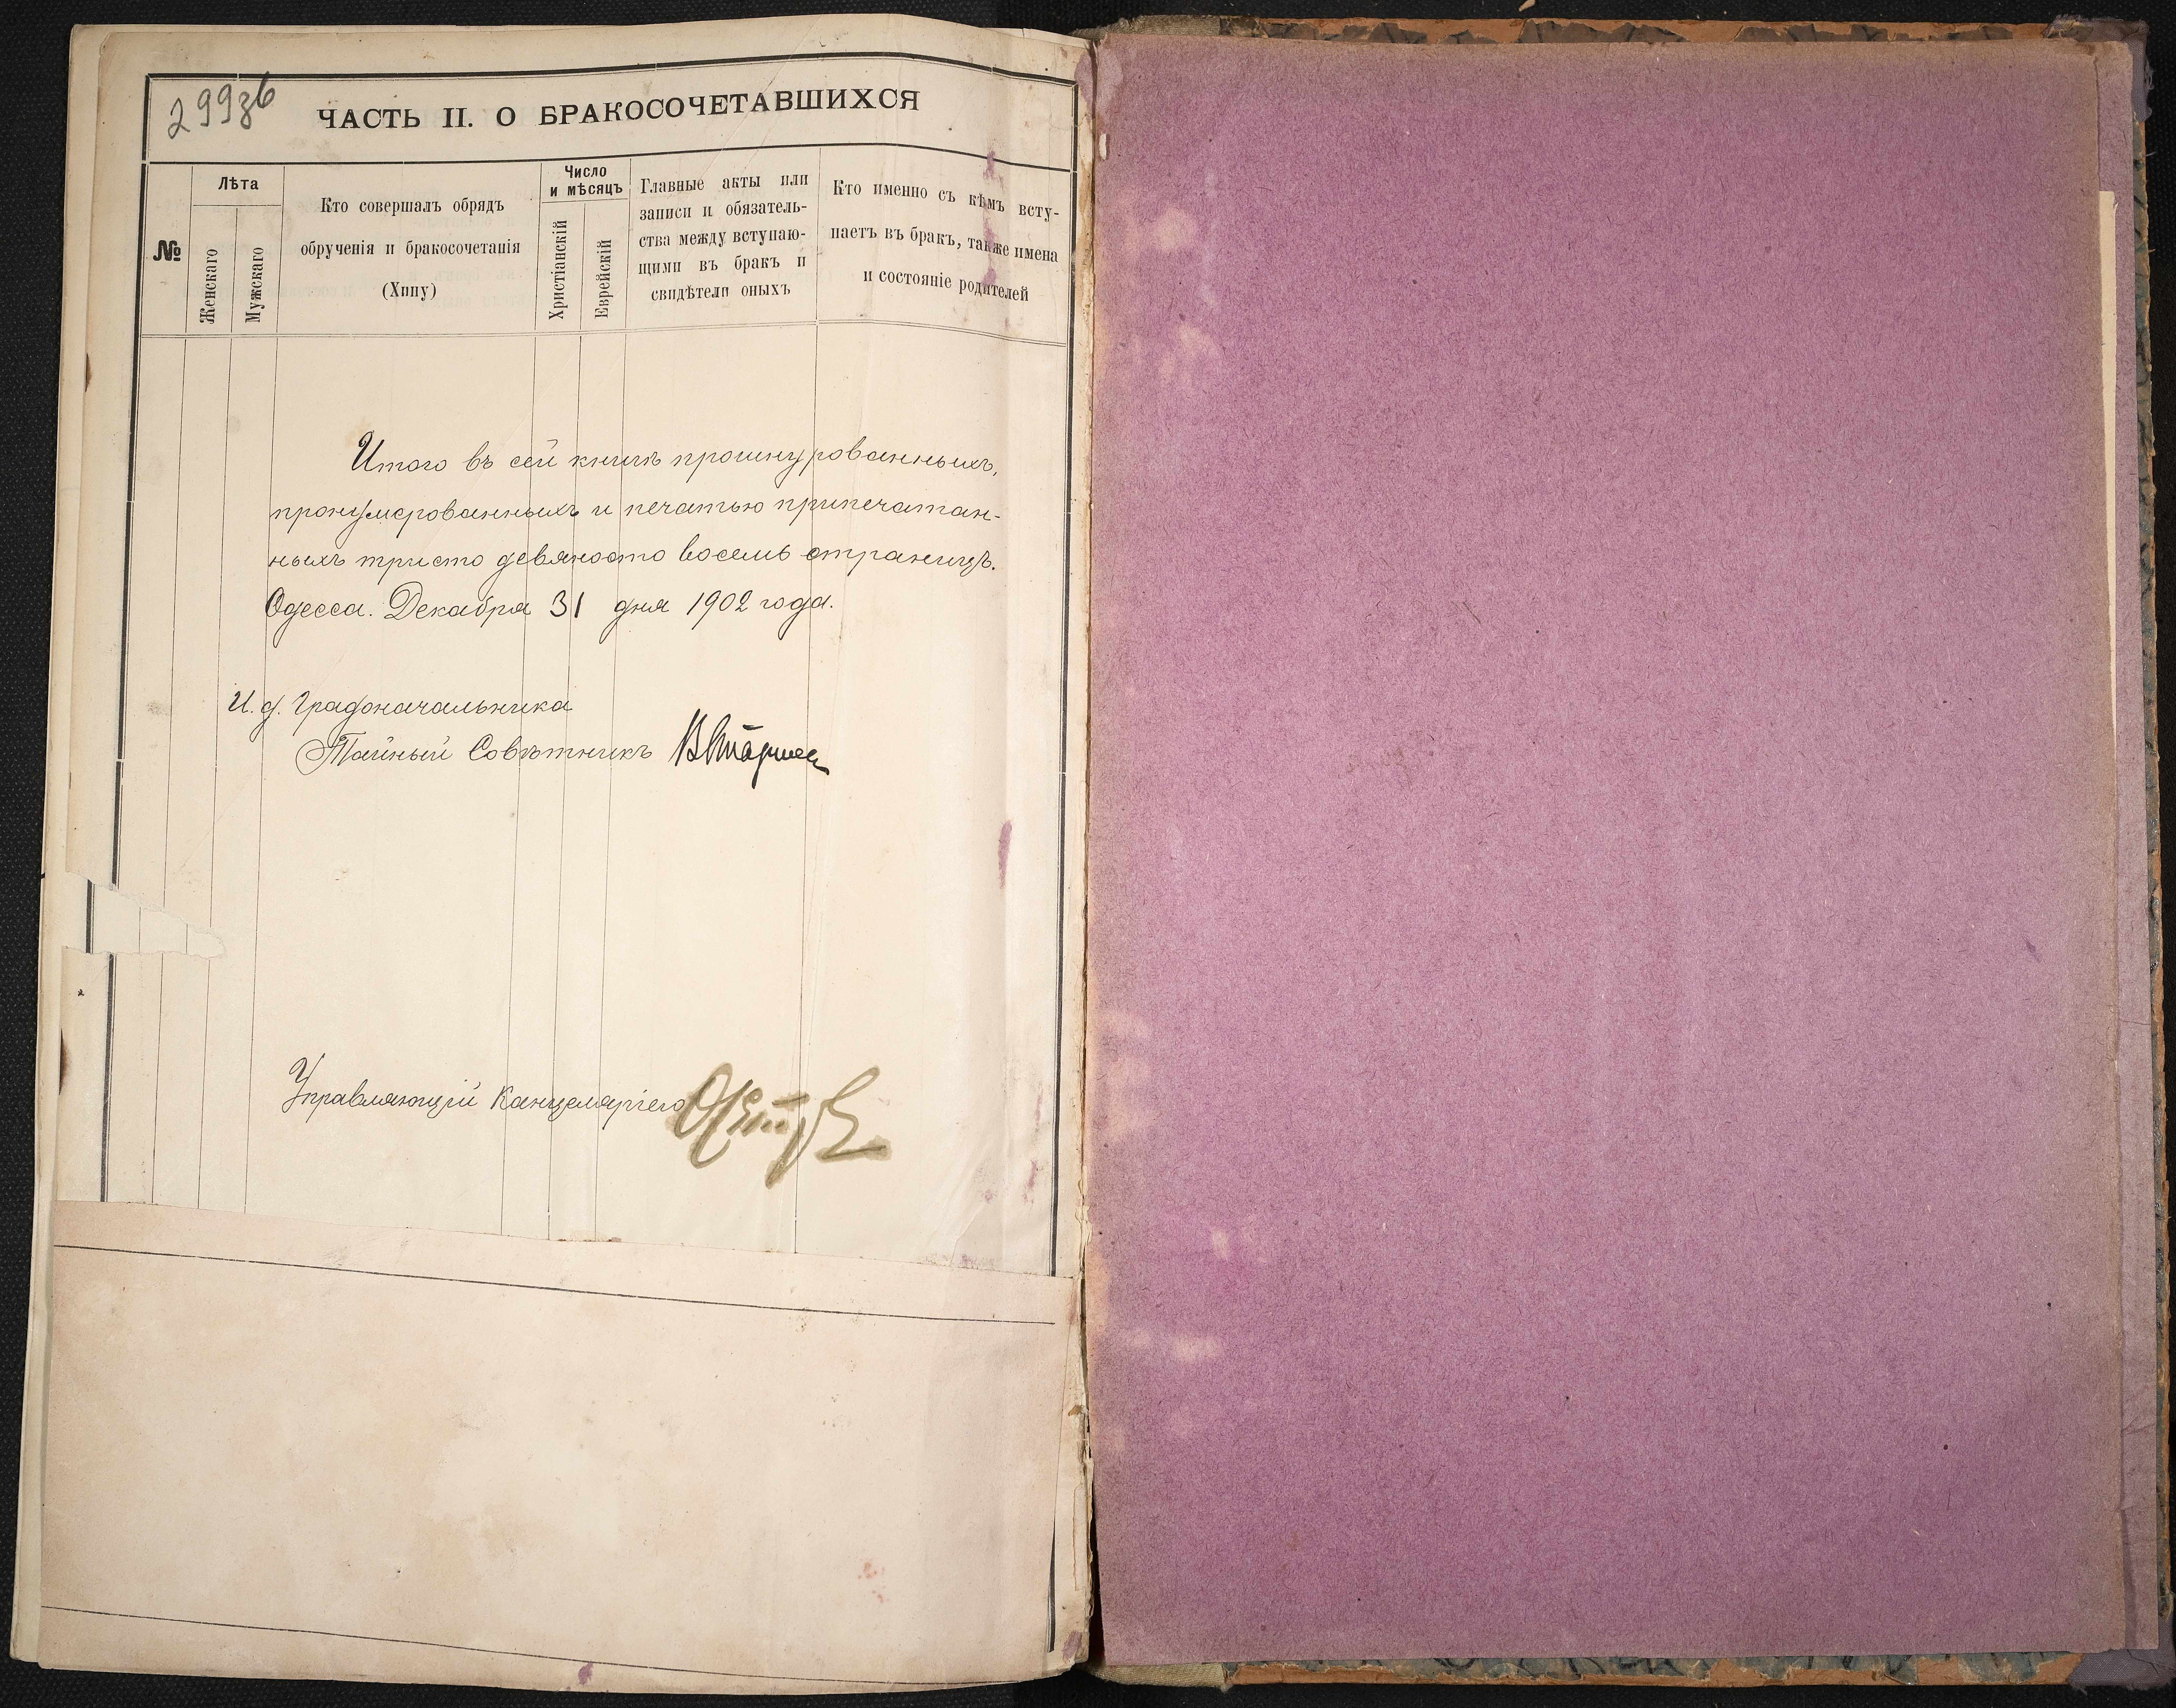 299зб
ЧАСТЬ II. О БРАКОСОЧЕТАВШИХСЯ
№
Лѣта
Женскаго
Мужскаго
Кто совершалъ обрядъ
обрученія и бракосочетанія
(Хипу)
Число
и мѣсяцъ
Христіанскій
Еврейскій
Главные акты или
записи и обязатель-
ства между вступаю-
щими въ бракъ и
свидѣтели оныхъ
Кто именно съ кѣмъ всту-
паетъ въ бракъ, также имена
и состояніе родителей
Итого въ сей книгѣ прошнурованныхъ,
пронумерованныхъ и печатью припечатан-
ныхъ тристо девяносто восемь страницъ.
Одесса. Декабря 31 дня 1902 года.
И. д. Градоначальника
Тайный Совѣтникъ
Управляющій Канцеляріею